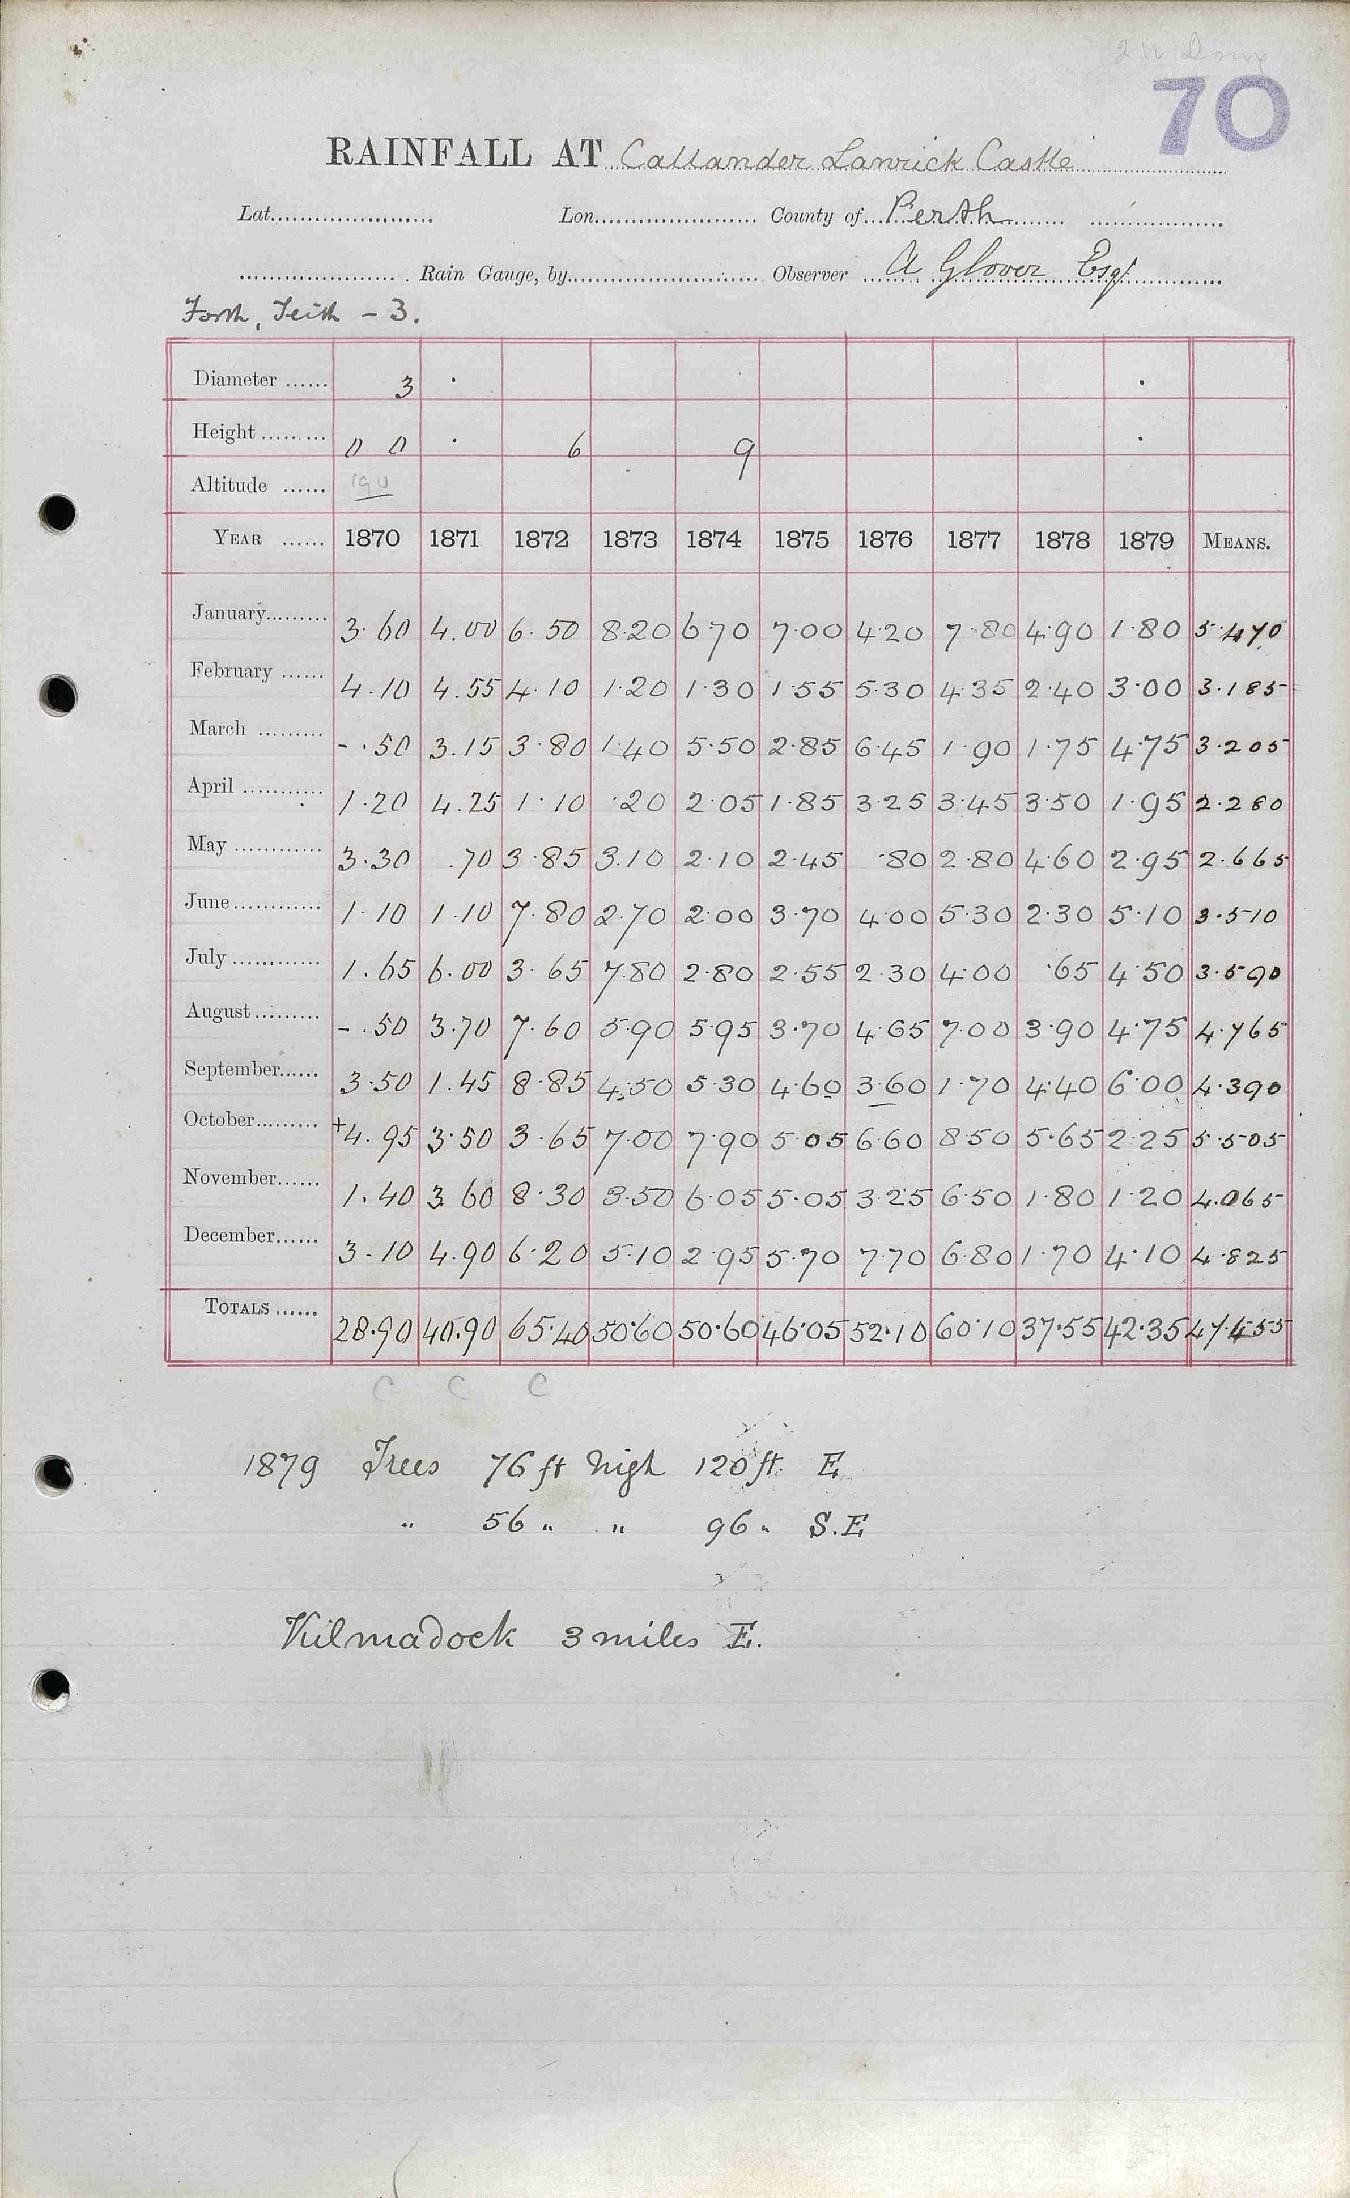 70
RAINFALL AT Callander Lanrick Castle
Lat. Lon. County of Perth
Rain Gauge, by Observer A Glover Esqr
Forth, Teith - 3.
Diameter 3
Height 0 0 6 9
Altitude 190
YEAR 1870 1871 1872 1873 1874 1875 1876 1877 1878 1879 MEANS.
January 3.60 4.00 6.50 8.20 6.70 7.00 4.20 7.80 4.90 1.80 5.470
February 4.10 4.55 4.10 1.20 1.30 1.55 5.30 4.35 2.40 3.00 3.185
March -.50 3.15 3.80 1.40 5.50 2.85 6.45 1.90 1.75 4.75 3.205
April 1.20 4.25 1.10 .20 2.05 1.85 3.25 3.45 3.50 1.95 2.280
May 3.30 .70 3.85 3.10 2.10 2.45 .80 2.80 4.60 2.95 2.665
June 1.10 1.10 7.80 2.70 2.00 3.70 4.00 5.30 2.30 5.10 3.510
July 1.65 6.00 3.65 7.80 2.80 2.55 2.30 4.00 .65 4.50 3.590
August -.50 3.70 7.60 5.90 5.95 3.70 4.65 7.00 3.90 4.75 4.765
September 3.50 1.45 8.85 4.50 5.30 4.60 3.60 1.70 4.40 6.00 4.390
October +4.95 3.50 3.65 7.00 7.90 5.05 6.60 8.50 5.65 2.25 5.505
November 1.40 3.60 8.30 3.50 6.05 5.05 3.25 6.50 1.80 1.20 4.065
December 3.10 4.90 6.20 5.10 2.95 5.70 7.70 6.80 1.70 4.10 4.825
TOTALS 28.90 40.90 65.40 50.60 50.60 46.05 52.10 60.10 37.55 42.35 47.455
C C C
1879 Trees 76 ft high 120 ft E
" 56 " " 96 " S.E
Kilmadock 3 miles E.